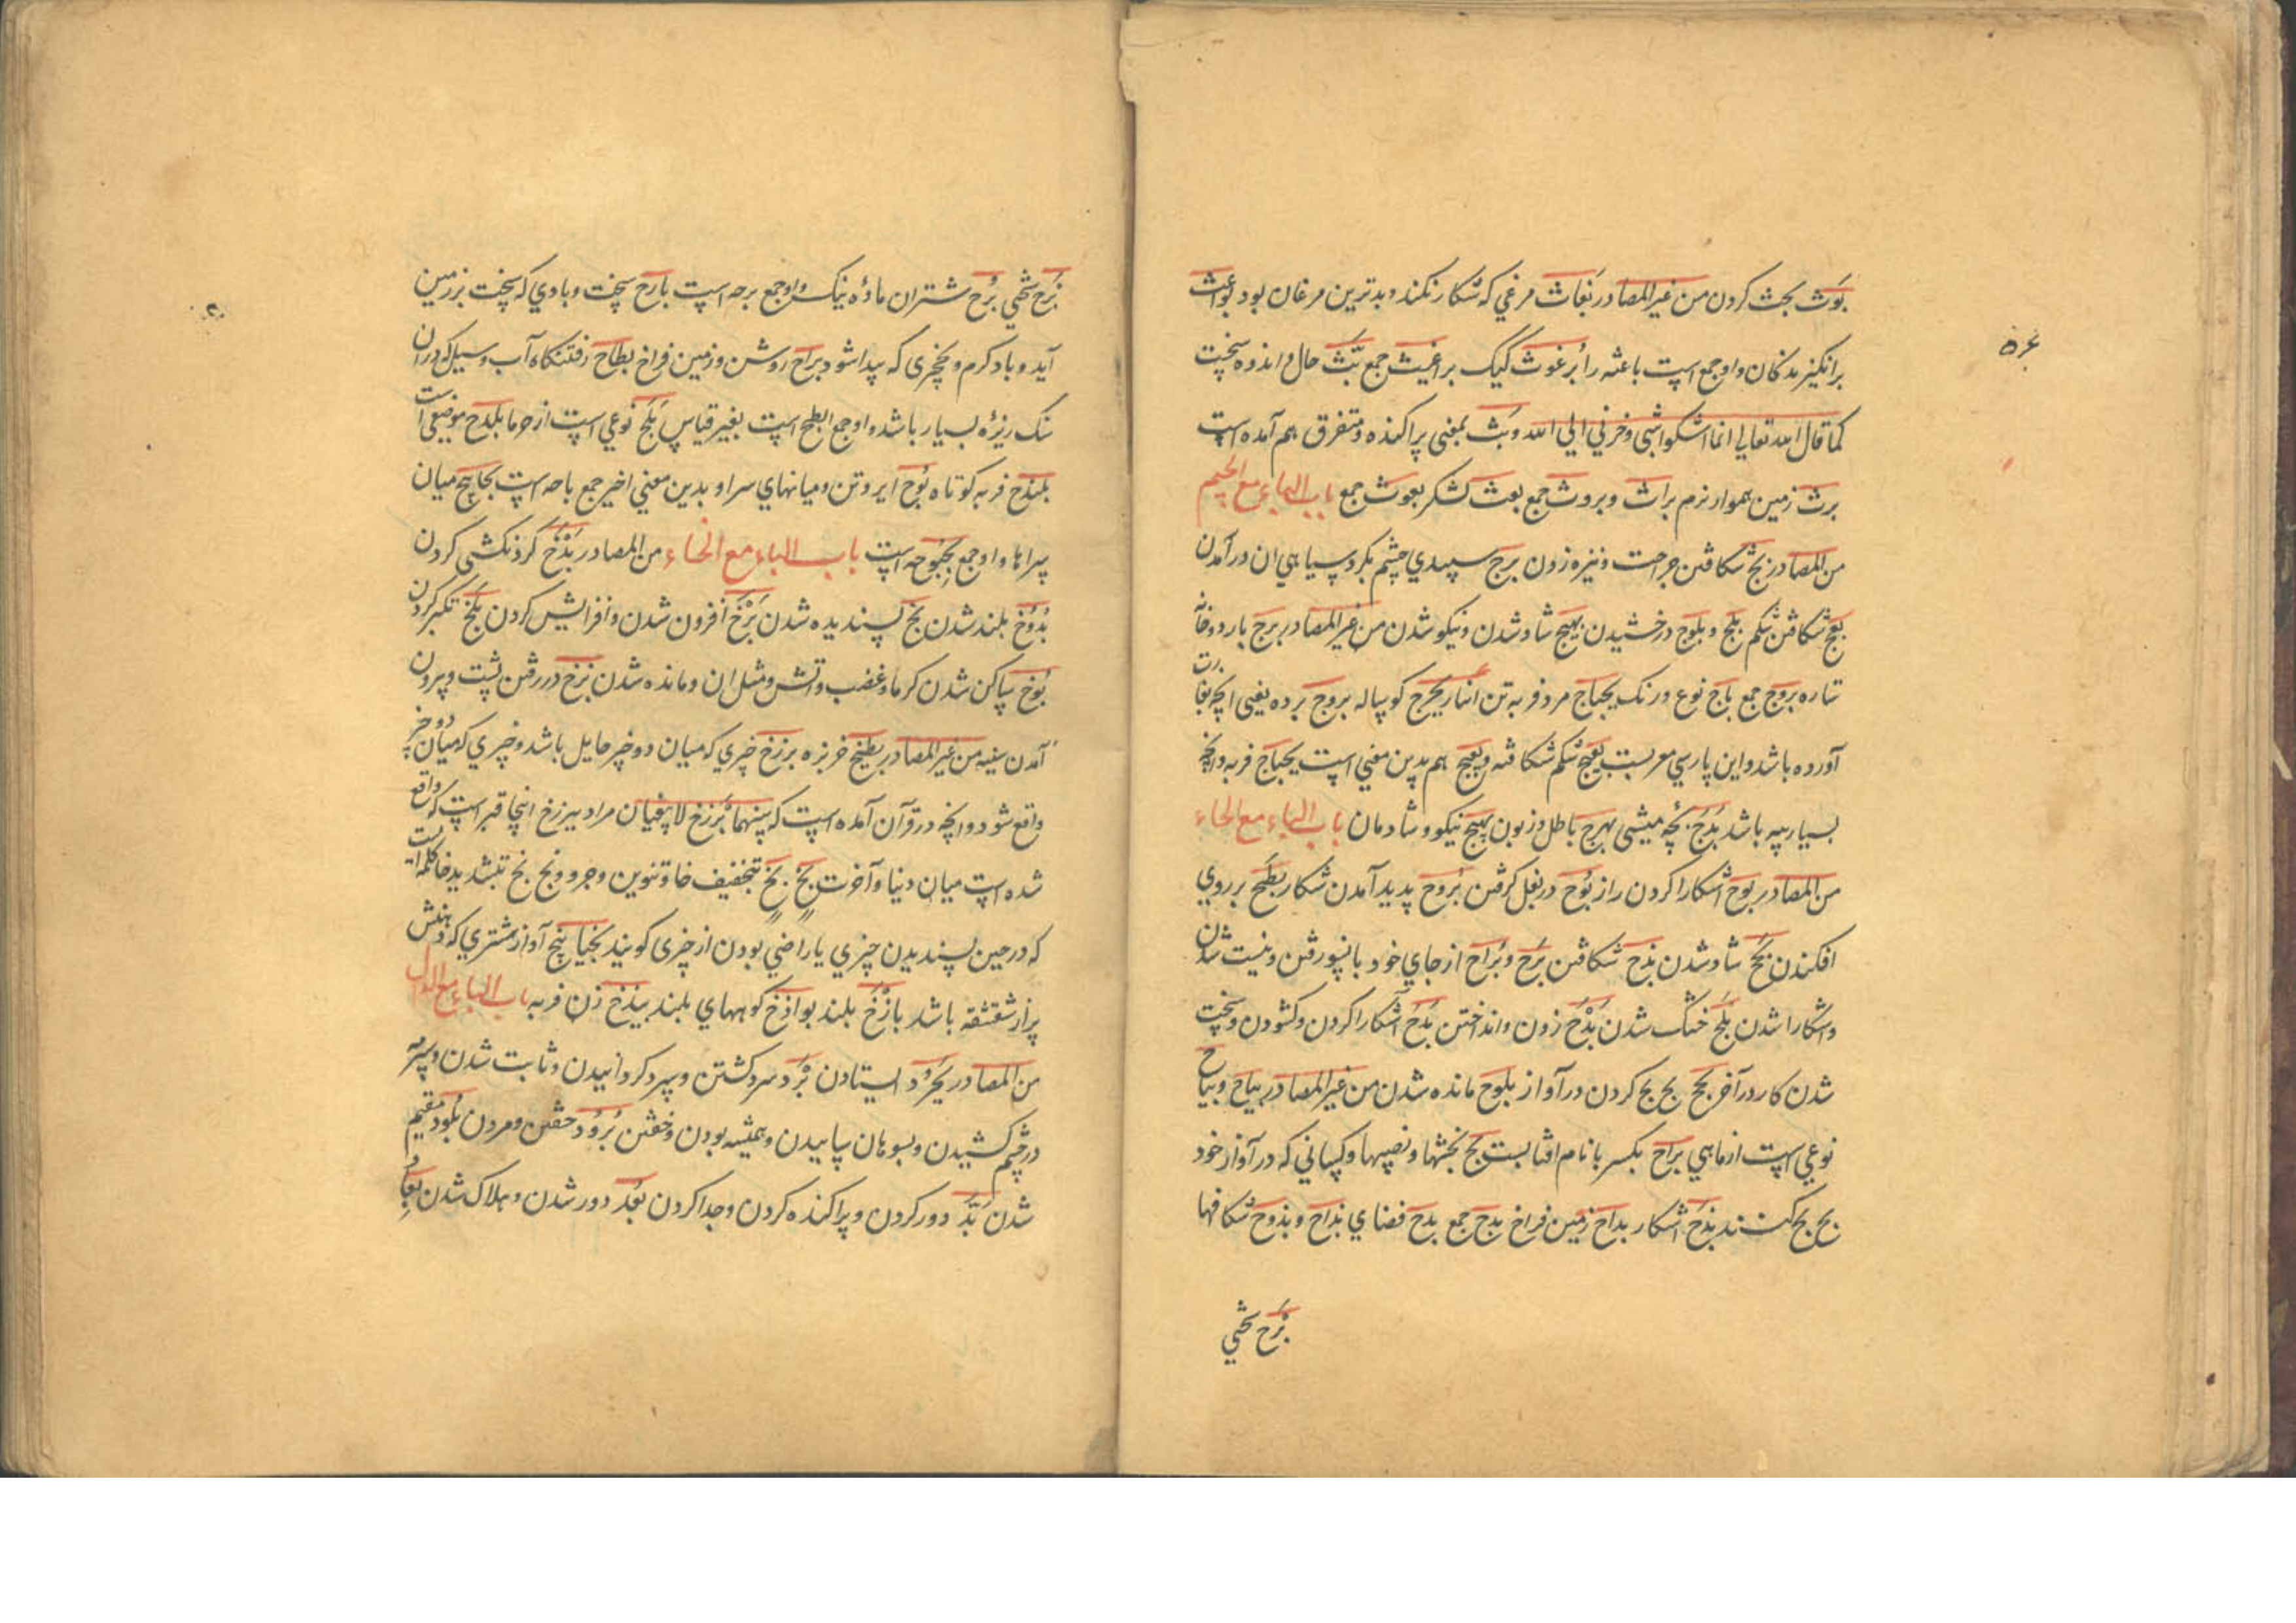 بَوث بحث کردن من غیر المصادر بَغاث مرغی که شکار نکند و بدترین مرغان بود بَواعث
برانگیزندکان و او جمع است باعثه را بُرغوث کیک براغیث جمع بَثّ حال و اندوه سخت
کما قال الله تعالی انما اشکوا بثی وحزنی الی الله و بَثّ بمعنی پراکنده و متفرق هم آمده است
برث زمین هموار نرم براث و بروث جمع بعث لشکر بعوث جمع باب الباء مع الجیم
من المصادر بَجّ شکافتن جراحت و نیزه زدن برج سپیدی چشم بکرد سیاهی ان در آمدن
بَعج شکافتن شکم بلج و بلوج درخشیدن بهیج شاد شدن و نیکو شدن من غیر المصادر برج باره و خانه
ستاره بروج جمع باج نوع و رنک بجباج مرد فربه تن انبار بحزج کوساله بروج برده یعنی انچه بغارت
آورده باشد و این پارسی معربست بعیج شکم شکافته و بعج هم بدین معنی است بجباج فربه و انچه
بسیار پیه باشد بَذَج بچه میشی بهرج باطل و زبون بهیج نیکو و شادمان باب الباء مع الحاء
من المصادر بوح اشکارا کردن راز بَوح در بغل کرفتن بروح پدید آمدن شکار بطح بر روی
افکندن بَجَح شاد شدن بذح شکافتن بَرَح و بَراح از جای خود بانسو رفتن و نیست شدن
و اشکارا شدن بَلَح خشک شدن بَدْح زدن و انداختن بَدَح آشکارا کردن و کشودن و سخت
شدن کار در آخر بَحَح بح بح کردن در آواز بلوح مانده شدن من غیر المصادر بیاح و بیاح
نوعی است از ماهی براح بکسر با نام افتابست بح بخشها و نصیبها و کسانی که در آواز خود
بح بح کنند بَذَح اشکار بداح زمین فراخ بدح جمع بدح فضای بذاح و بذوح شکافها
بَرَح سختی
۵۴
بَرَح سختی بُرَح شتران ماده نیک و او جمع برحه است بارح سخت و بادی که سخت بر زمین
آید و باد کرم و نخچیری که پیدا شود براح روشن و زمین فراخ بطاح رفتنکاه آب و سیل که در ان
سنک ریزه بسیار باشد و او جمع ابطح است بغیر قیاس بَلَح نوعی است از خرما بلدح موضعی است
بلندح فربه کوتاه بُوح ایر و تن و میانهای سرا و بدین معنی اخیر جمع باحه است بحابح میان
سراها و او جمع بحبوحه است باب الباء مع الخاء من المصادر بَذَخ کردنکشی کردن
بُذوخ بلند شدن بخ پسندیده شدن بَزْخ افزون شدن و افزایش کردن بَلَخ تکبر کردن
بَوخ ساکن شدن کرما و غضب و آتش و مثل ان و مانده شدن بَزَخ در رفتن پشت و بیرون
آمدن سینه من غیر المصادر بطیخ خربزه برزخ چیزی که میان دو چیز حایل باشد و چیزی که میان دو چیز
واقع شود و انچه در قرآن آمده است که بینهما برزخ لا یبغیان مراد ببرزخ اینجا قبر است که واقع
شده است میان دنیا و آخرت بَخْ بَخٍ بتخفیف خا و تنوین و جر و بخّ بخّ بتشدید خا کلمه ایست
که در حین پسندیدن چیزی یا راضی بودن از چیزی کویند بخباخ آواز شتری که دهنش
پر از شقشقه باشد باذخ بلند بواذخ کوههای بلند بیذخ زن فربه باب الباء مع الدال
من المصادر بجود ایستادن بَرد سرد کشتن و سرد کردانیدن و ثابت شدن و سرمه
در چشم کشیدن و بسوهان ساییدن و همیشه بودن و خفتن بُرود خفتن و مردن بُلود مقیم
شدن بَدّ دور کردن و پراکنده کردن و جدا کردن بُعد دور شدن و هلاک شدن بِعاد